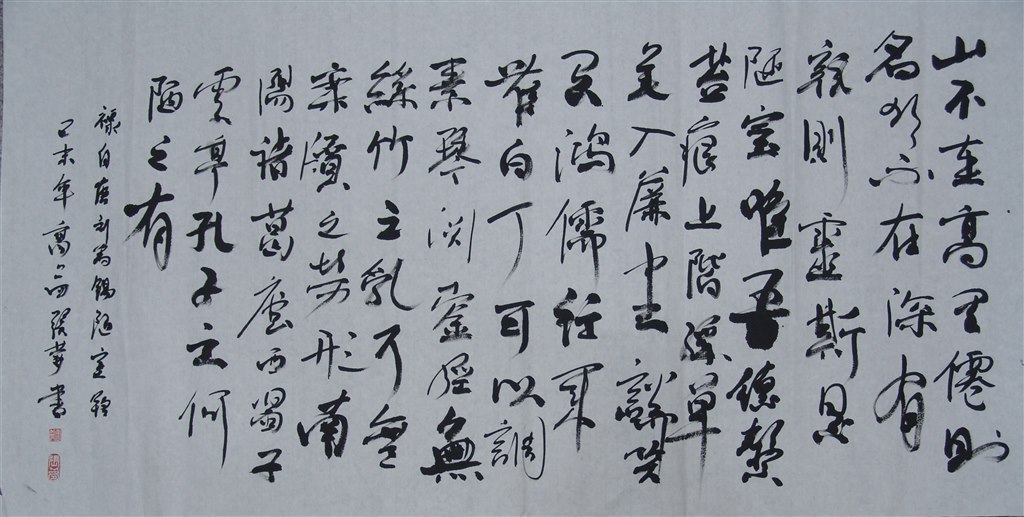 山不在高有僊則
名水不在深有
龍則靈斯是
陋室唯吾德馨
苔痕上階綠草
色入簾青談笑
有鴻儒往來
無白丁可以調
素琴閱金經無
絲竹之亂耳無
案牘之勞形南
陽諸葛廬西蜀子
雲亭孔子云何
陋之有
錄自唐劉禹錫陋室銘
己未年高書